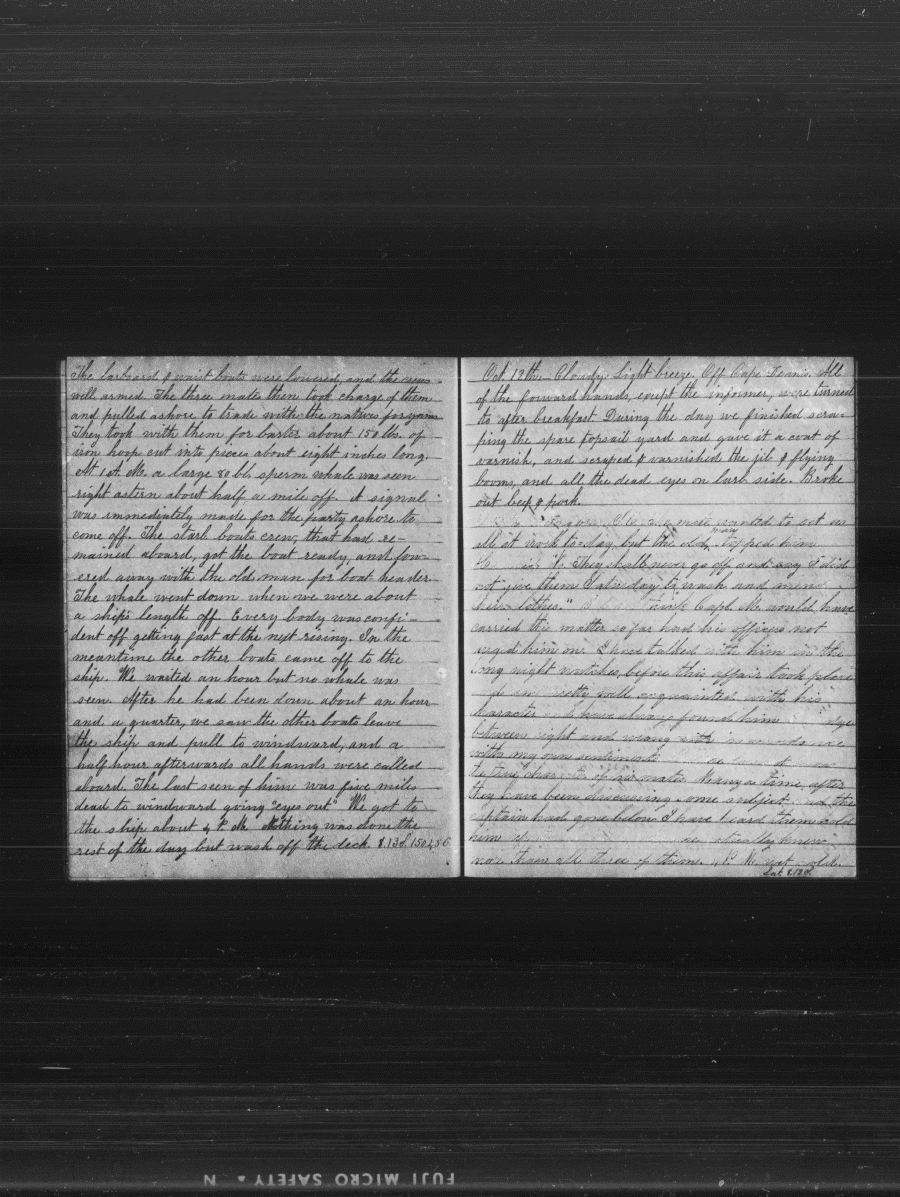 The larboard & waist boats were lowered, and the crews
well armed. The three mates then took charge of them
and pulled ashore to trade with the natives for yams
They took with them for barter about 150 lbs. of
iron hoop cut into pieces about eight inches long.
At 1 A. M. a large 80 bbl. sperm whale was seen
right astern about half a mile off. A signal
was immediately made for the party ashore to
come off. The starb. boats crew, that had re-
mained aboard, got the boat ready, and low-
ered away with the old man for boat header.
The whale went down when we were about
a ship's length off. Every body was confi-
dent off getting fast at the next rising. In the
meantime the other boats came off to the
ship. We waited an hour but no whale was
seen. After he had been down about an hour
and a quarter, we saw the other boats leave
the ship and pull to windward, and a
half hour afterwards all hands were called
aboard. The last seen of him was five miles
dead to windward going "eyes out". We got to
the ship about 4 P. M. Nothing was done the
rest of the day but wash off the deck.
Oct. 12th. Cloudy. Light breeze. Off Cape Denis. All
of the forward hands, except the informer, were turned
to after breakfast. During the day we finished scra-
ping the spare topsail yard and gave it a coat of
varnish, and scraped & varnished the jib & flying
booms, and all the dead eyes on larb. side. Broke
out beef & pork.
wanted to set us
all at work to-day, but the old man stopped him
They shall never go off and say I did
not give them Saturday to wash and mend
their clothes." think Capt. M. would have
carried the matter so far had his officers not
urged him on. I have talked with him in the
long night watches before this affair took place
pretty well acquainted with his
character. I have always found him
between right and wrong
with my own sentiments
of his mates. Many a time after
they have been discussing some subject and the
captain had gone below I have heard them
him
more than all three of them. P. M.
Lat. 8.12